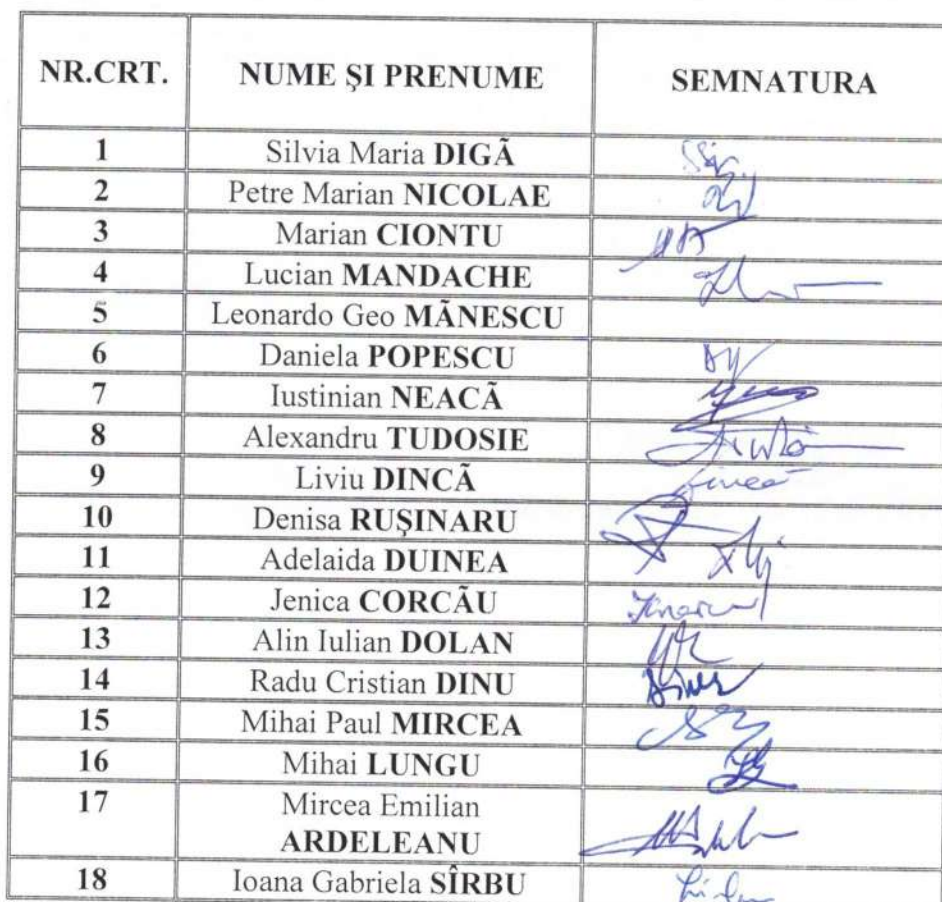 NR.CRT. NUME ŞI PRENUME SEMNATURA
1 Silvia Maria DIGÃ
2 Petre Marian NICOLAE
3 Marian CIONTU
4 Lucian MANDACHE
5 Leonardo Geo MÃNESCU
6 Daniela POPESCU
7 Iustinian NEACÃ
8 Alexandru TUDOSIE
9 Liviu DINCÃ
10 Denisa RUŞINARU
11 Adelaida DUINEA
12 Jenica CORCÃU
13 Alin Iulian DOLAN
14 Radu Cristian DINU
15 Mihai Paul MIRCEA
16 Mihai LUNGU
17 Mircea Emilian
ARDELEANU
18 Ioana Gabriela SÎRBU